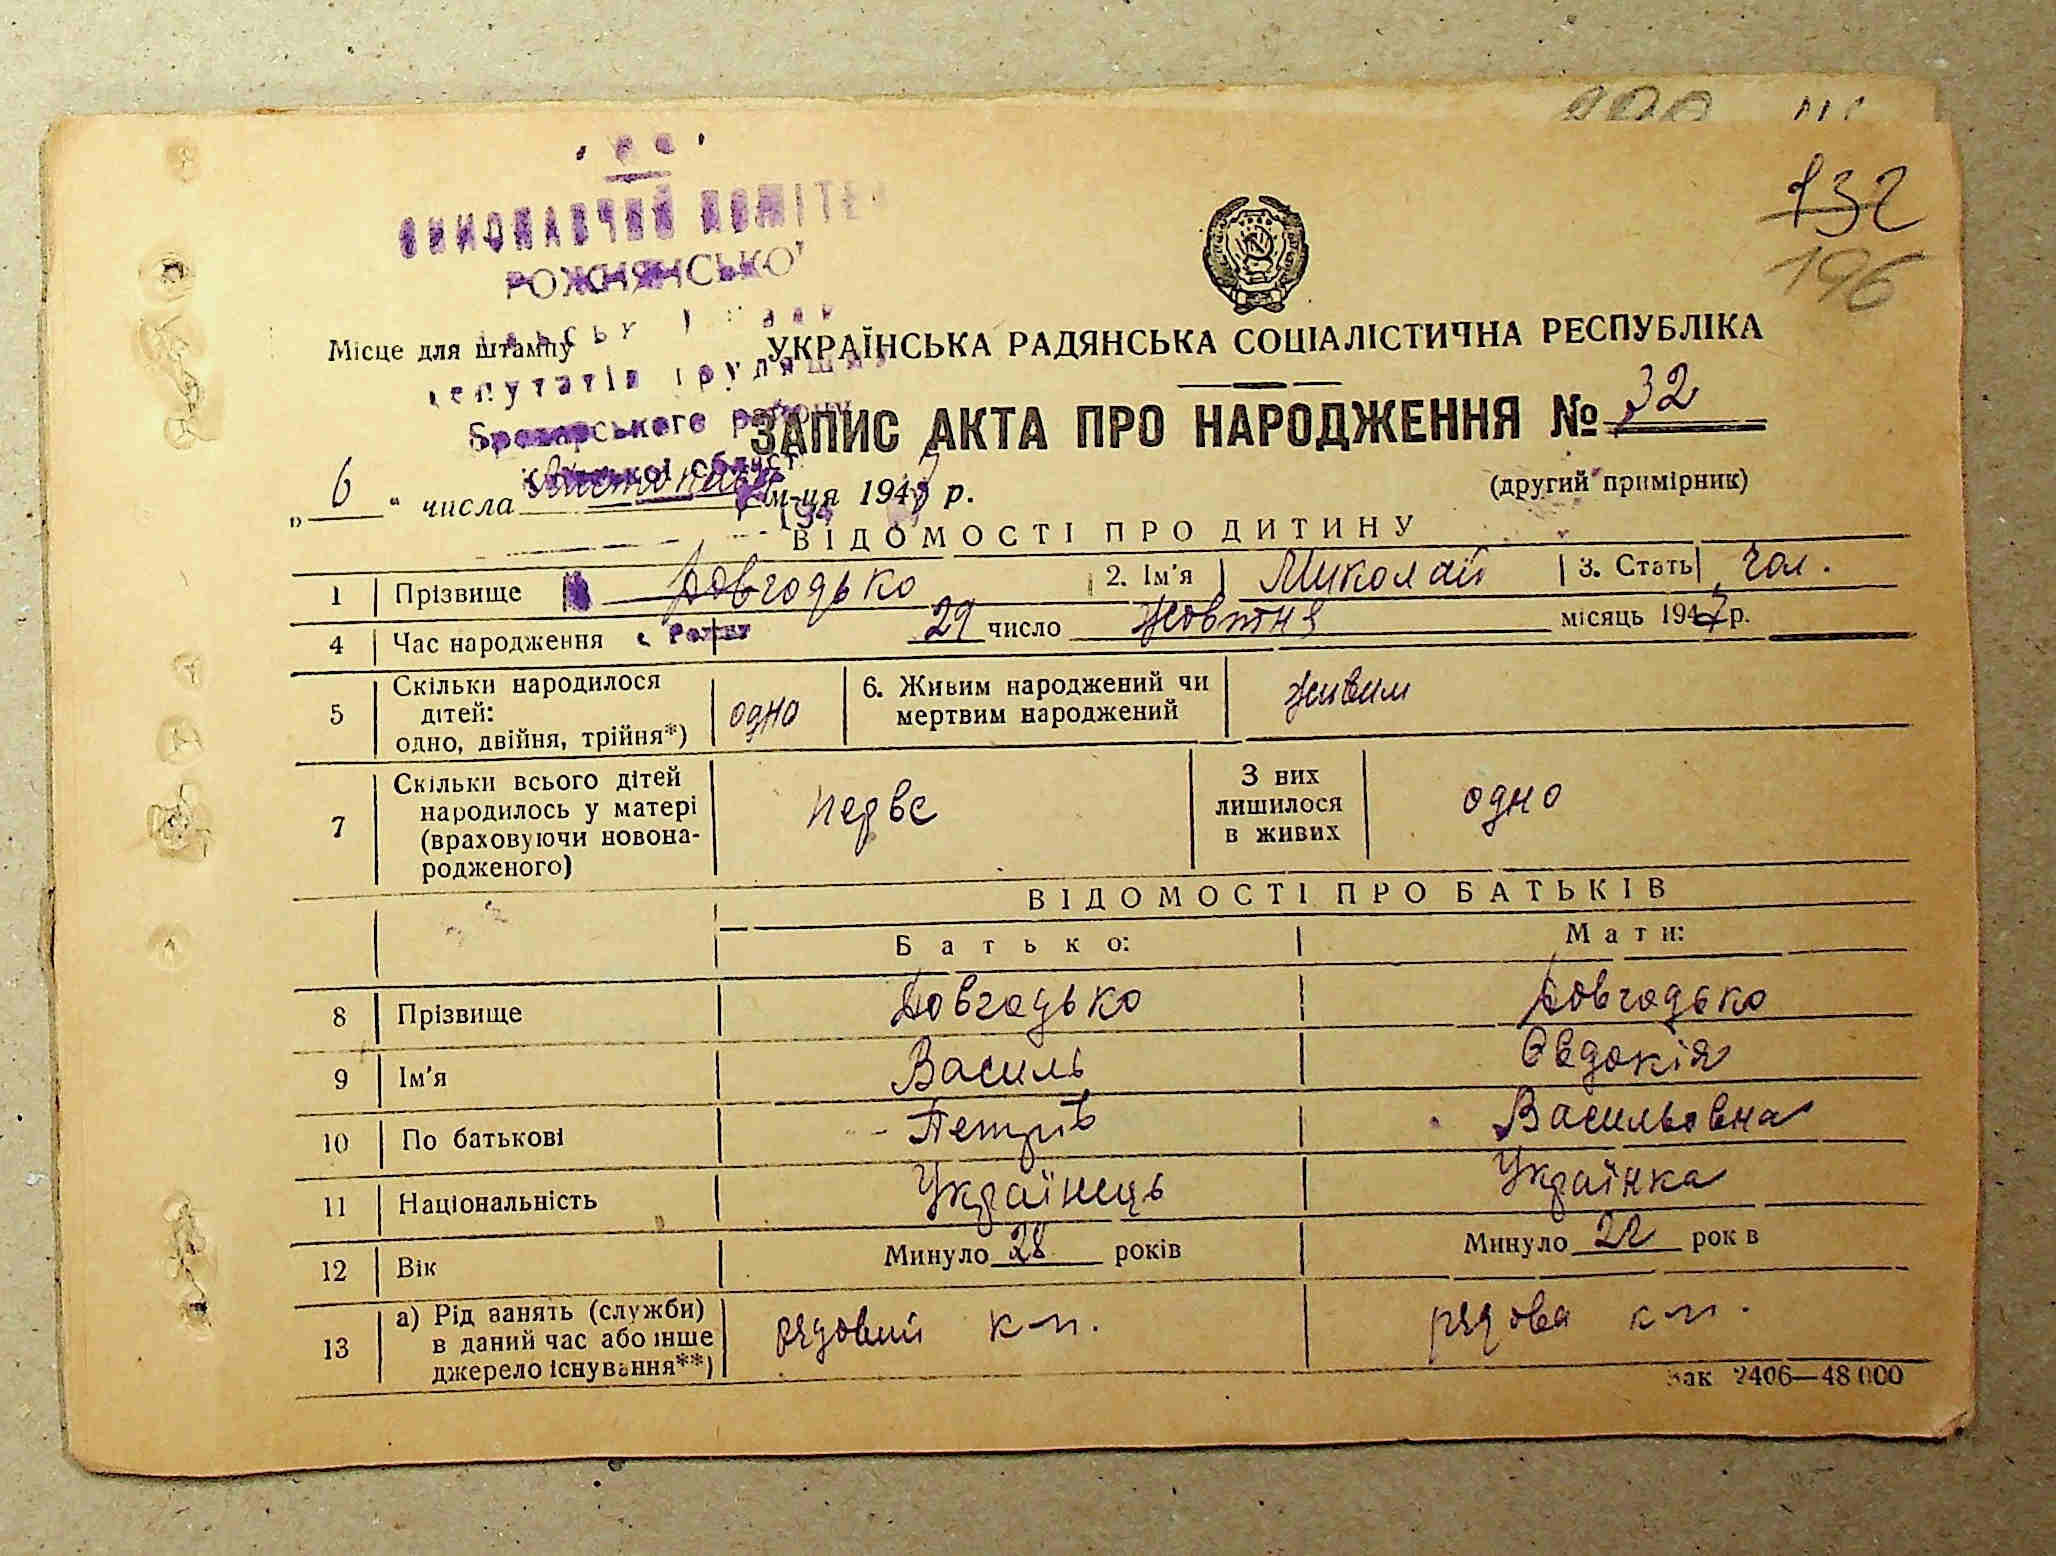 132
196
ВИКОНАВЧИЙ КОМІТЕ
РОЖНЯНСЬКОЇ
Місце для штампу
УКРАЇНСЬКА РАДЯНСЬКА СОЦІАЛІСТИЧНА РЕСПУБЛІКА
депутатів трудящих
Броварського району
ЗАПИС АКТА ПРО НАРОДЖЕННЯ № 32
Київської област
(другий примірник)
„ 6 “ числа Листопада м-ця 1947 р.
ВІДОМОСТІ ПРО ДИТИНУ
1 Прізвище Довгодько 2. Ім'я Миколай 3. Стать чол.
4 Час народження с. Рожни 29 число Жовтня місяць 1947 р.
5 Скільки народилося дітей: одно, двійня, трійня*) одно 6. Живим народжений чи мертвим народжений живим
7 Скільки всього дітей народилось у матері (враховуючи новонародженого) перве З них лишилося в живих одно
ВІДОМОСТІ ПРО БАТЬКІВ
Батько: Мати:
8 Прізвище Довгодько Довгодько
9 Ім'я Василь Євдокія
10 По батькові Петрів Васильовна
11 Національність Українець Українка
12 Вік Минуло 28 років Минуло 22 рок в
13 а) Рід занять (служби) в даний час або інше джерело існування**) рядовий к-п. рядова к-п.
Зак 2406—48 000